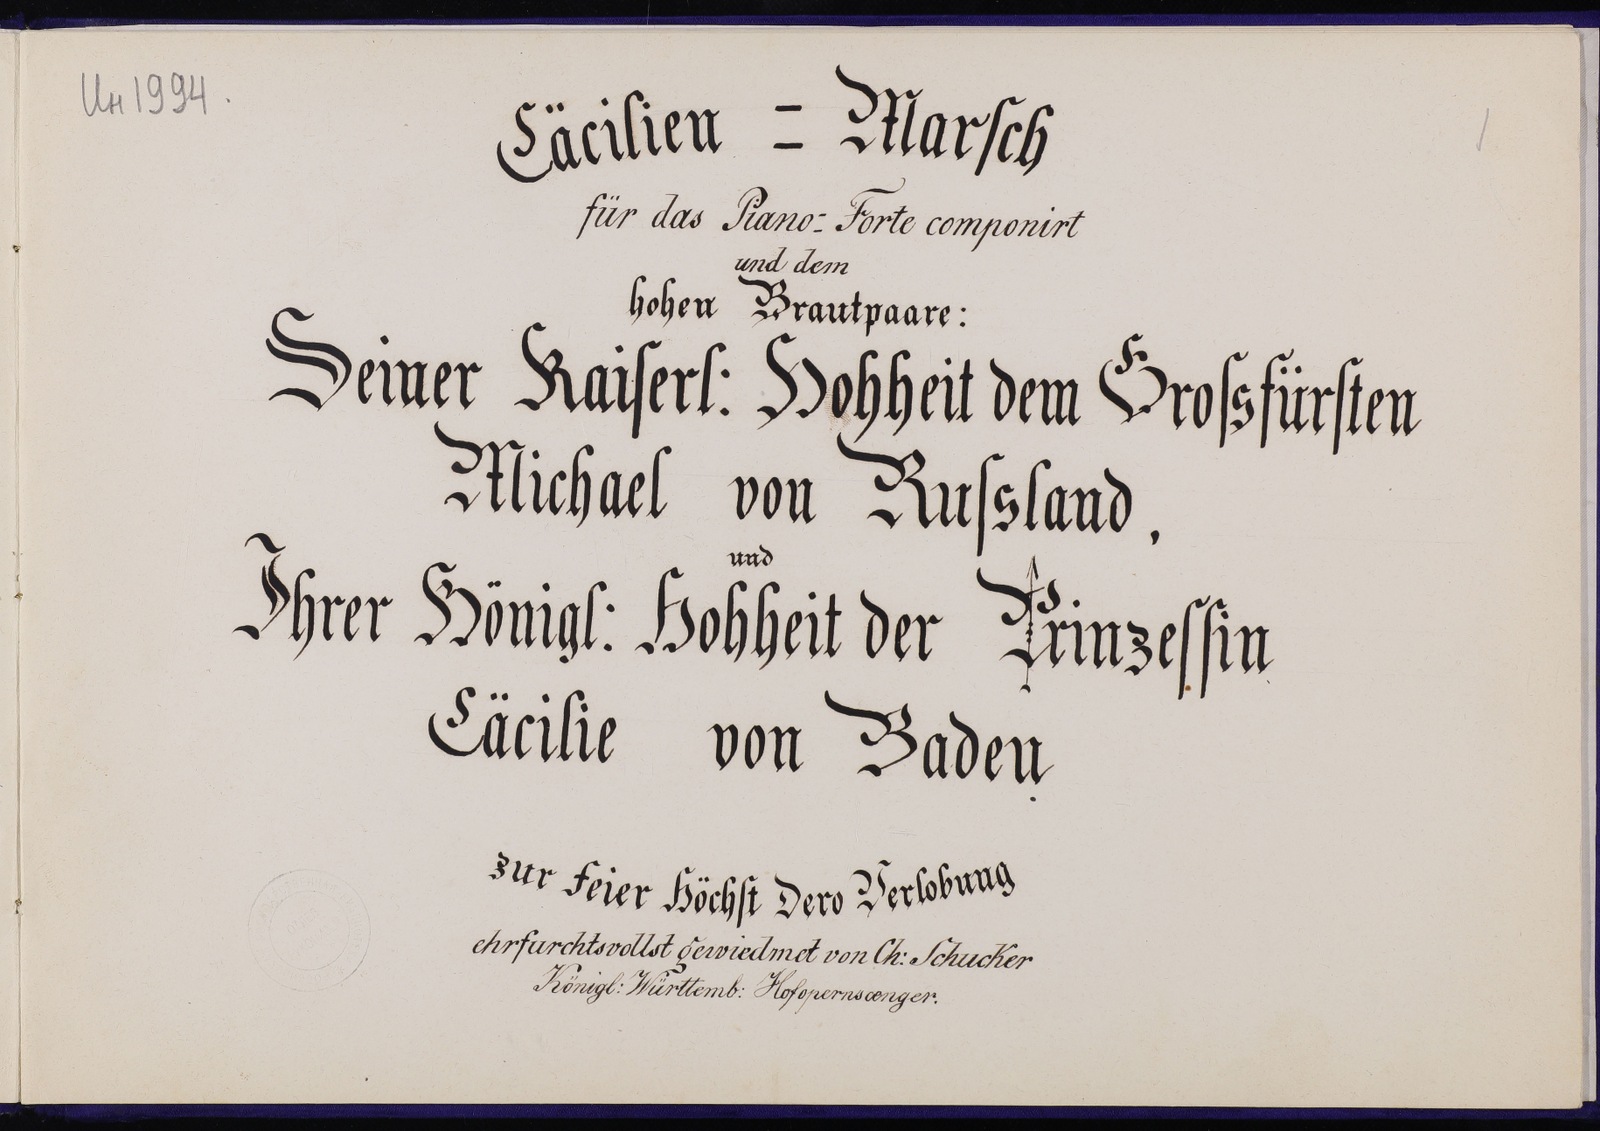 Ин 1994.
1
Cäcilien = Marsch
für das Piano= Forte componirt
und dem
hohen Brautpaare:
Seiner Kaiserl: Hohheit dem Grossfürsten
Michael von Russland,
und
Ihrer Königl: Hohheit der Prinzessin
Cäcilie von Baden
zur Feier Höchst Dero Verlobung
ehrfurchtsvollst gewiedmet von Ch: Schucker
Königl: Württemb: Hofopernsænger.